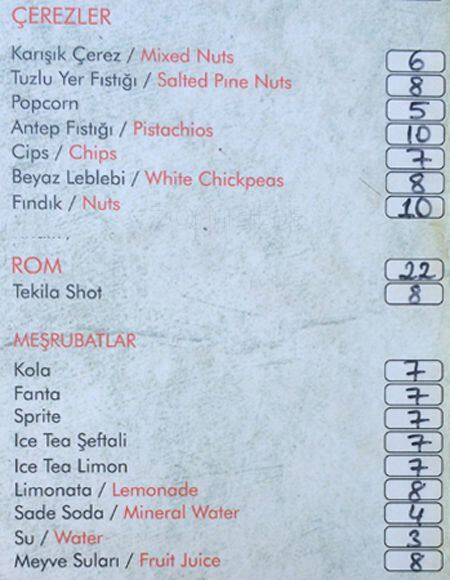 ÇEREZLER
Karışık Çerez / Mixed Nuts 6
Tuzlu Yer Fıstığı / Salted Pine Nuts 8
Popcorn 5
Antep Fıstığı / Pistachios 10
Cips / Chips 7
Beyaz Leblebi / White Chickpeas 8
Fındık / Nuts 10
ROM 22
Tekila Shot 8
MEŞRUBATLAR
Kola 7
Fanta 7
Sprite 7
Ice Tea Şeftali 7
Ice Tea Limon 7
Limonata / Lemonade 8
Sade Soda / Mineral Water 4
Su / Water 3
Meyve Suları / Fruit Juice 8